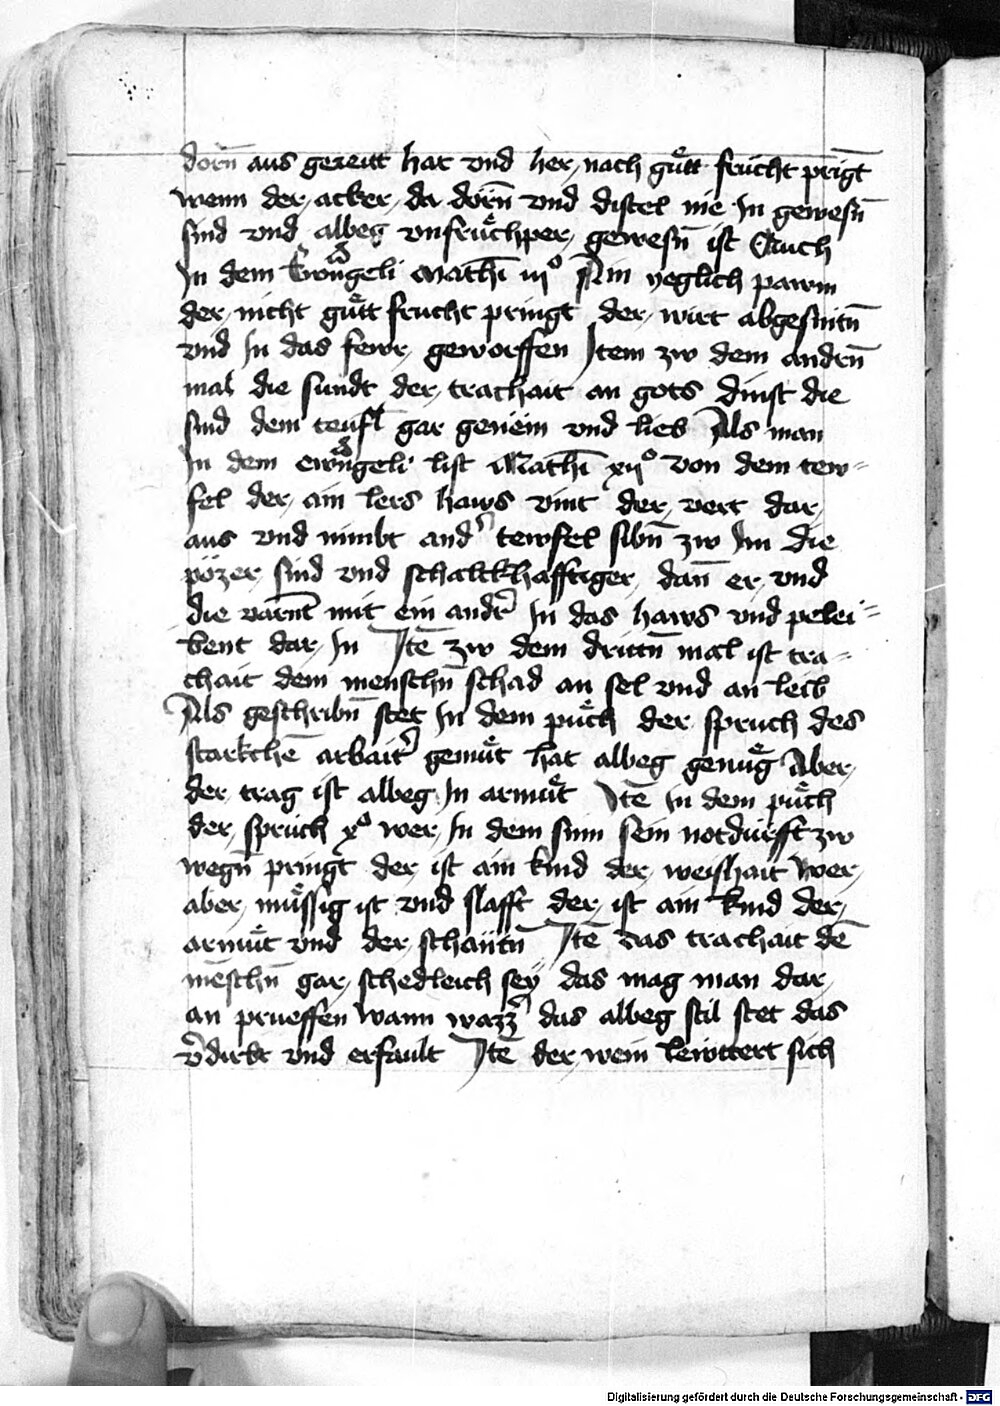 dorn̄ aus gereutt hat vnd her nach guͤtt frucht prīgt̄
wenn der acker da dorn̄ vnd distel nie In gewesn̄
sind vnd albeg vnfruͤchper gewesn̄ ist Auch
In dem Ewāngeli Mathei̅ iijº Ain yeglich pawm
der nicht guͤtt frucht pringt der wirt abgesnitn̄
vnd In das fewr geworffen Item zw dem andrn̄
mal die sundt der trachait an gots dinst die
sind dem teufl̄ gar genëm vnd lieb Als man
In dem ewāngeli list Mathei̅ xijº von dem tew=
fel der ain lers haws vint der vert dar
aus vnd nimbt and̕ tewfel sibn̄ zw Im die
pözer sind vnd schalckhafftiger dan̄ er vnd
die varnt̄ mit ein andr̕ In das haws vnd pelei=
bent dar In Itē zw dem drittn̄ mal ist tra=
chait dem menschn̄ schad an sel vnd an leib
Als geschribn̄ stet In dem puͤch der spruch des
starkchē arbait̕ gemuͤt hat albeg genuͤg Aber
der trag ist albeg In armuͤt Itē In dem puͤch
der spruch xº wer In dem sum̄ sein notdurfft zw
wegn̄ pringt der ist ain kind der weishait Wer
aber muͤssig ist vnd slafft der ist ain kind der
armuͤt vnd der schantn̄ Itē das trachait dē
mēschn̄ gar schedleich sey das mag man dar
an prueffen Wann wazz̕ das albeg stil stet das
v̕dirbt vnd erfault Itē der wein lewttert sich
Digitalisierung gefördert durch die Deutsche Forschungsgemeinschaft - DFG